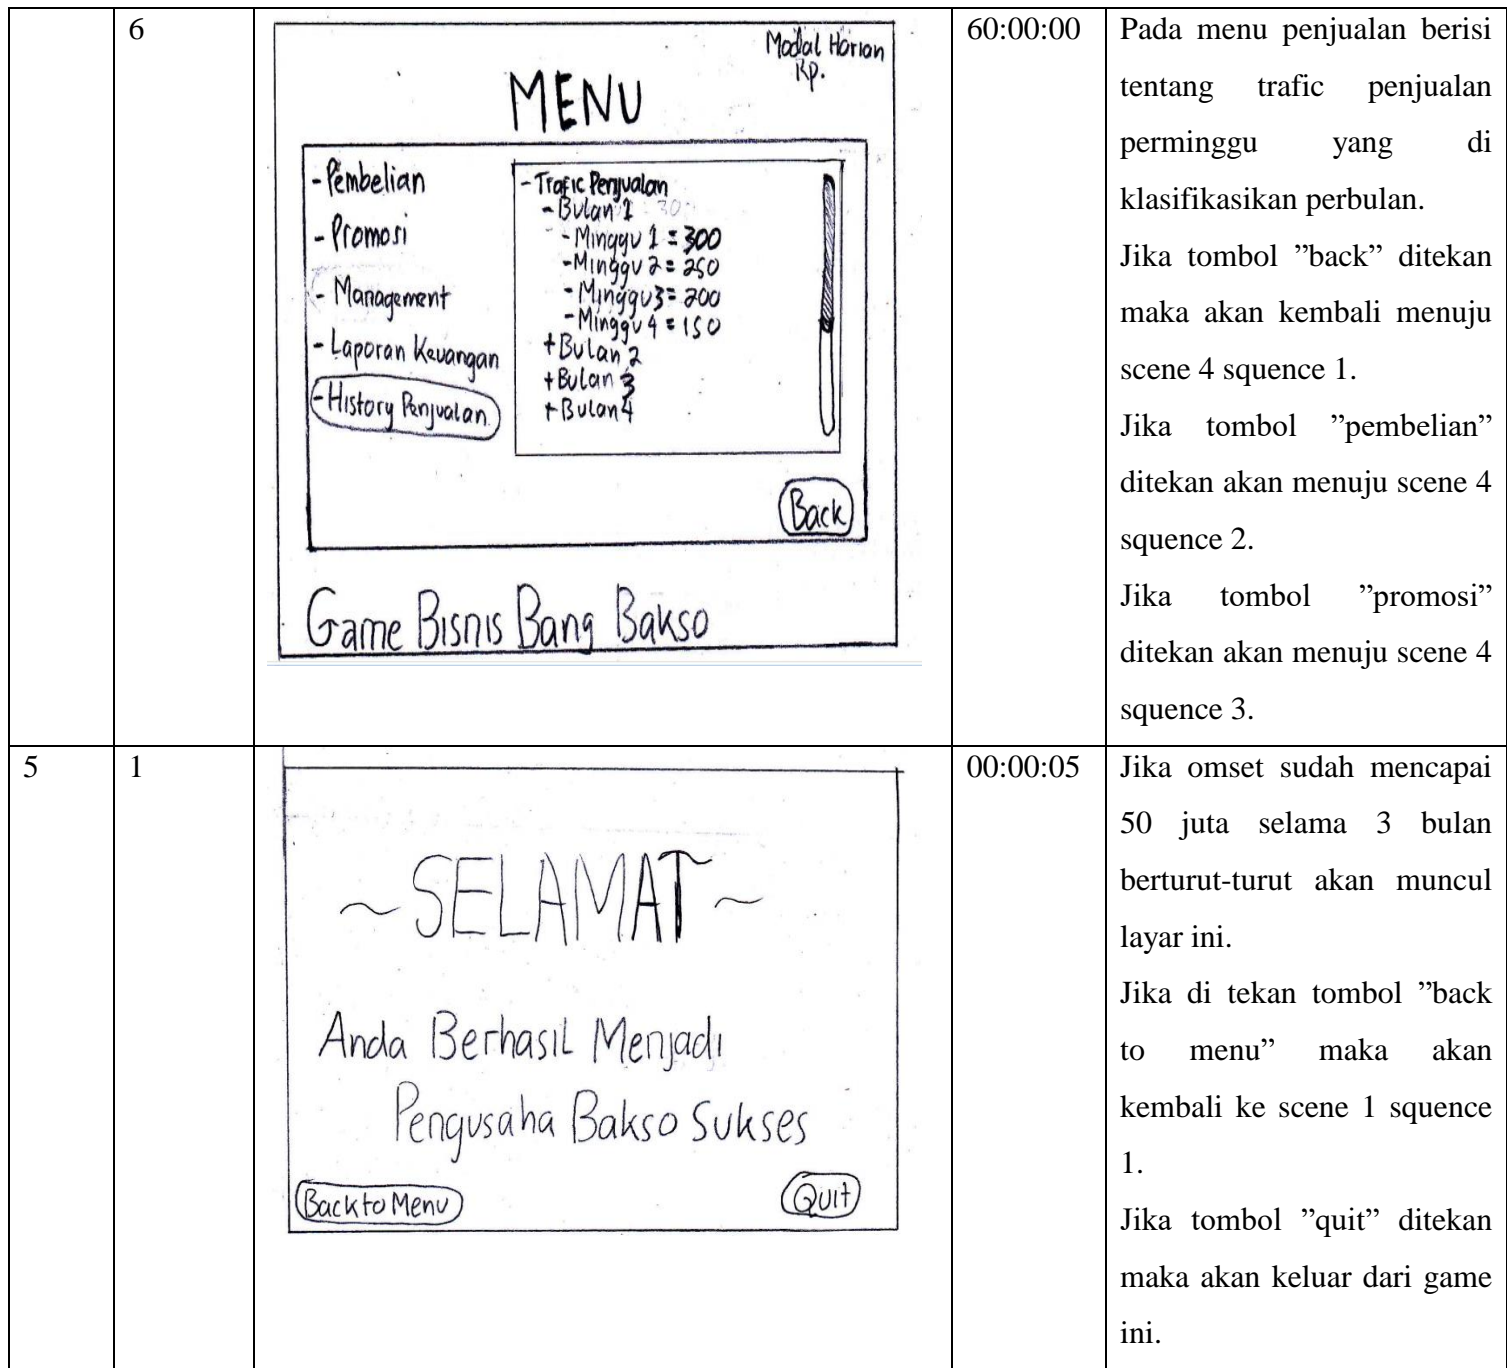 6
Modal Harian
Rp.
MENU
- Pembelian
- Promosi
- Management
- Laporan Keuangan
- History Penjualan
- Trafic Penjualan
- Bulan 1
- Minggu 1 = 300
- Minggu 2 = 250
- Minggu 3 = 200
- Minggu 4 = 150
+ Bulan 2
+ Bulan 3
+ Bulan 4
Back
Game Bisnis Bang Bakso
60:00:00
Pada menu penjualan berisi
tentang trafic penjualan
perminggu yang di
klasifikasikan perbulan.
Jika tombol ”back” ditekan
maka akan kembali menuju
scene 4 squence 1.
Jika tombol ”pembelian”
ditekan akan menuju scene 4
squence 2.
Jika tombol ”promosi”
ditekan akan menuju scene 4
squence 3.
5
1
~ SELAMAT ~
Anda Berhasil Menjadi
Pengusaha Bakso Sukses
Back to Menu
Quit
00:00:05
Jika omset sudah mencapai
50 juta selama 3 bulan
berturut-turut akan muncul
layar ini.
Jika di tekan tombol ”back
to menu” maka akan
kembali ke scene 1 squence
1.
Jika tombol ”quit” ditekan
maka akan keluar dari game
ini.